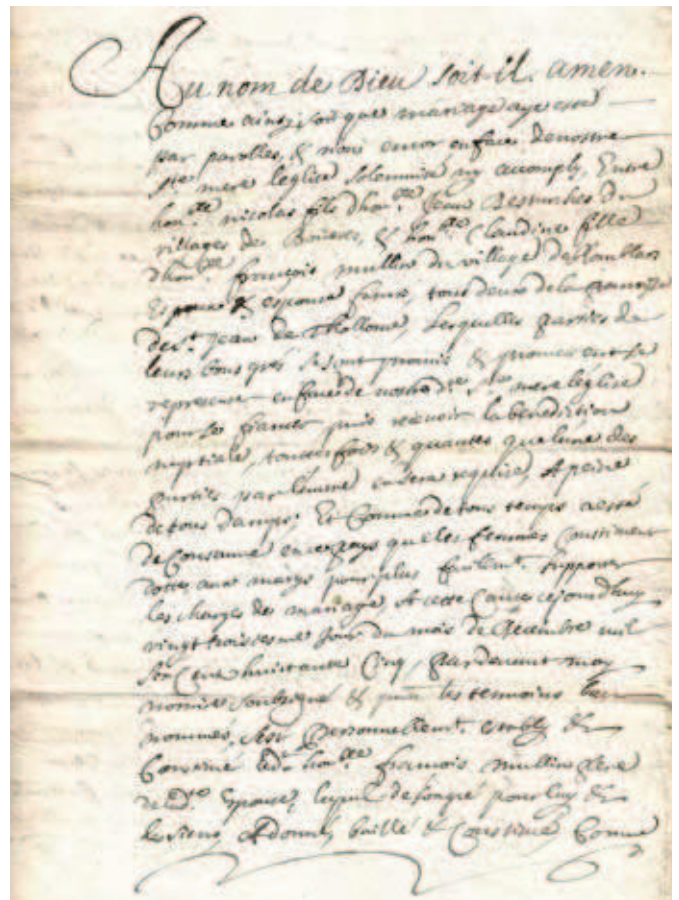 Au nom de Dieu soit-il. amen.
Comme ainsy soit que mariage aye esté
par parolles, & non encor en face de nostre
ste mere leglise solemnisé ny accomply, Entre
honble nicolas fils dhonble Jean Desruches du
villages de &, & honble Claudine fille
dhonble françois mullin du village de
Espoux & espouse futurs, tous deux de la
de St. Jean de thollome, Lesquelles parties de
leurs bons gré se sont promis & promettent se
representer en face de nostre dte ste mere leglise
pour se puis recevoir la benediction
nuptiale, toutesfois & quantes que lune des
parties par lautre en sera requise, A peine
de tous damps; Et Comme de tous temps a esté
de Coustume en ce pays que les femmes Constituent
dottes aux marys pour plus facilemt. supporter
les charges des mariage, A cette Cause cejourdhuy
vingt troisiesme Jour du mois de decembre mil
six Cent huictante Cinq, pardevant moy
notaire soubsigné & les temoins bas
nommés, s'est personnellemt. estably &
Constitué ledt honble françois mullin pere
de ladte Espouse, lequel de son gré pour luy &
les siens, A donné, baillé & Constitué, Comme